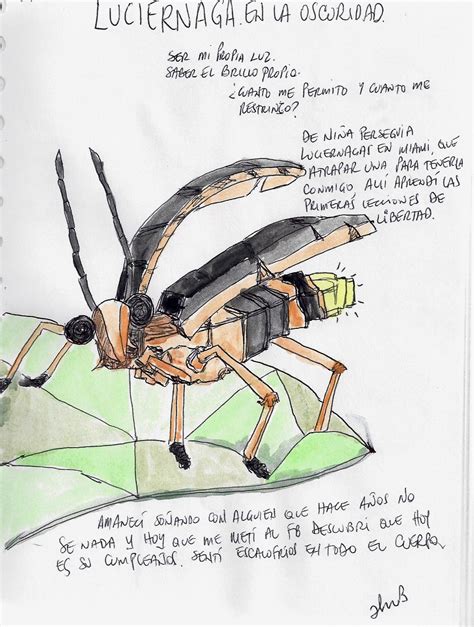 LUCIERNAGA. EN LA OSCURIDAD.
SER MI PROPIA LUZ.
SABER EL BRILLO PROPIO.
¿CUANTO ME PERMITO Y CUANTO ME
RESTRINGO?
DE NIÑA PERSEGUIA
LUCIERNAGAS EN MIAMI, QUE
ATRAPAR UNA PARA TENERLA
CONMIGO. ALLI APRENDÍ LAS
PRIMERAS LECCIONES DE
LIBERTAD.
AMANECÍ SOÑANDO CON ALGUIEN QUE HACE AÑOS NO
SE NADA Y HOY QUE ME METÍ AL FB DESCUBRÍ QUE HOY
ES SU CUMPLEAÑOS. SENTÍ ESCALOFRIOS EN TODO EL CUERPO.